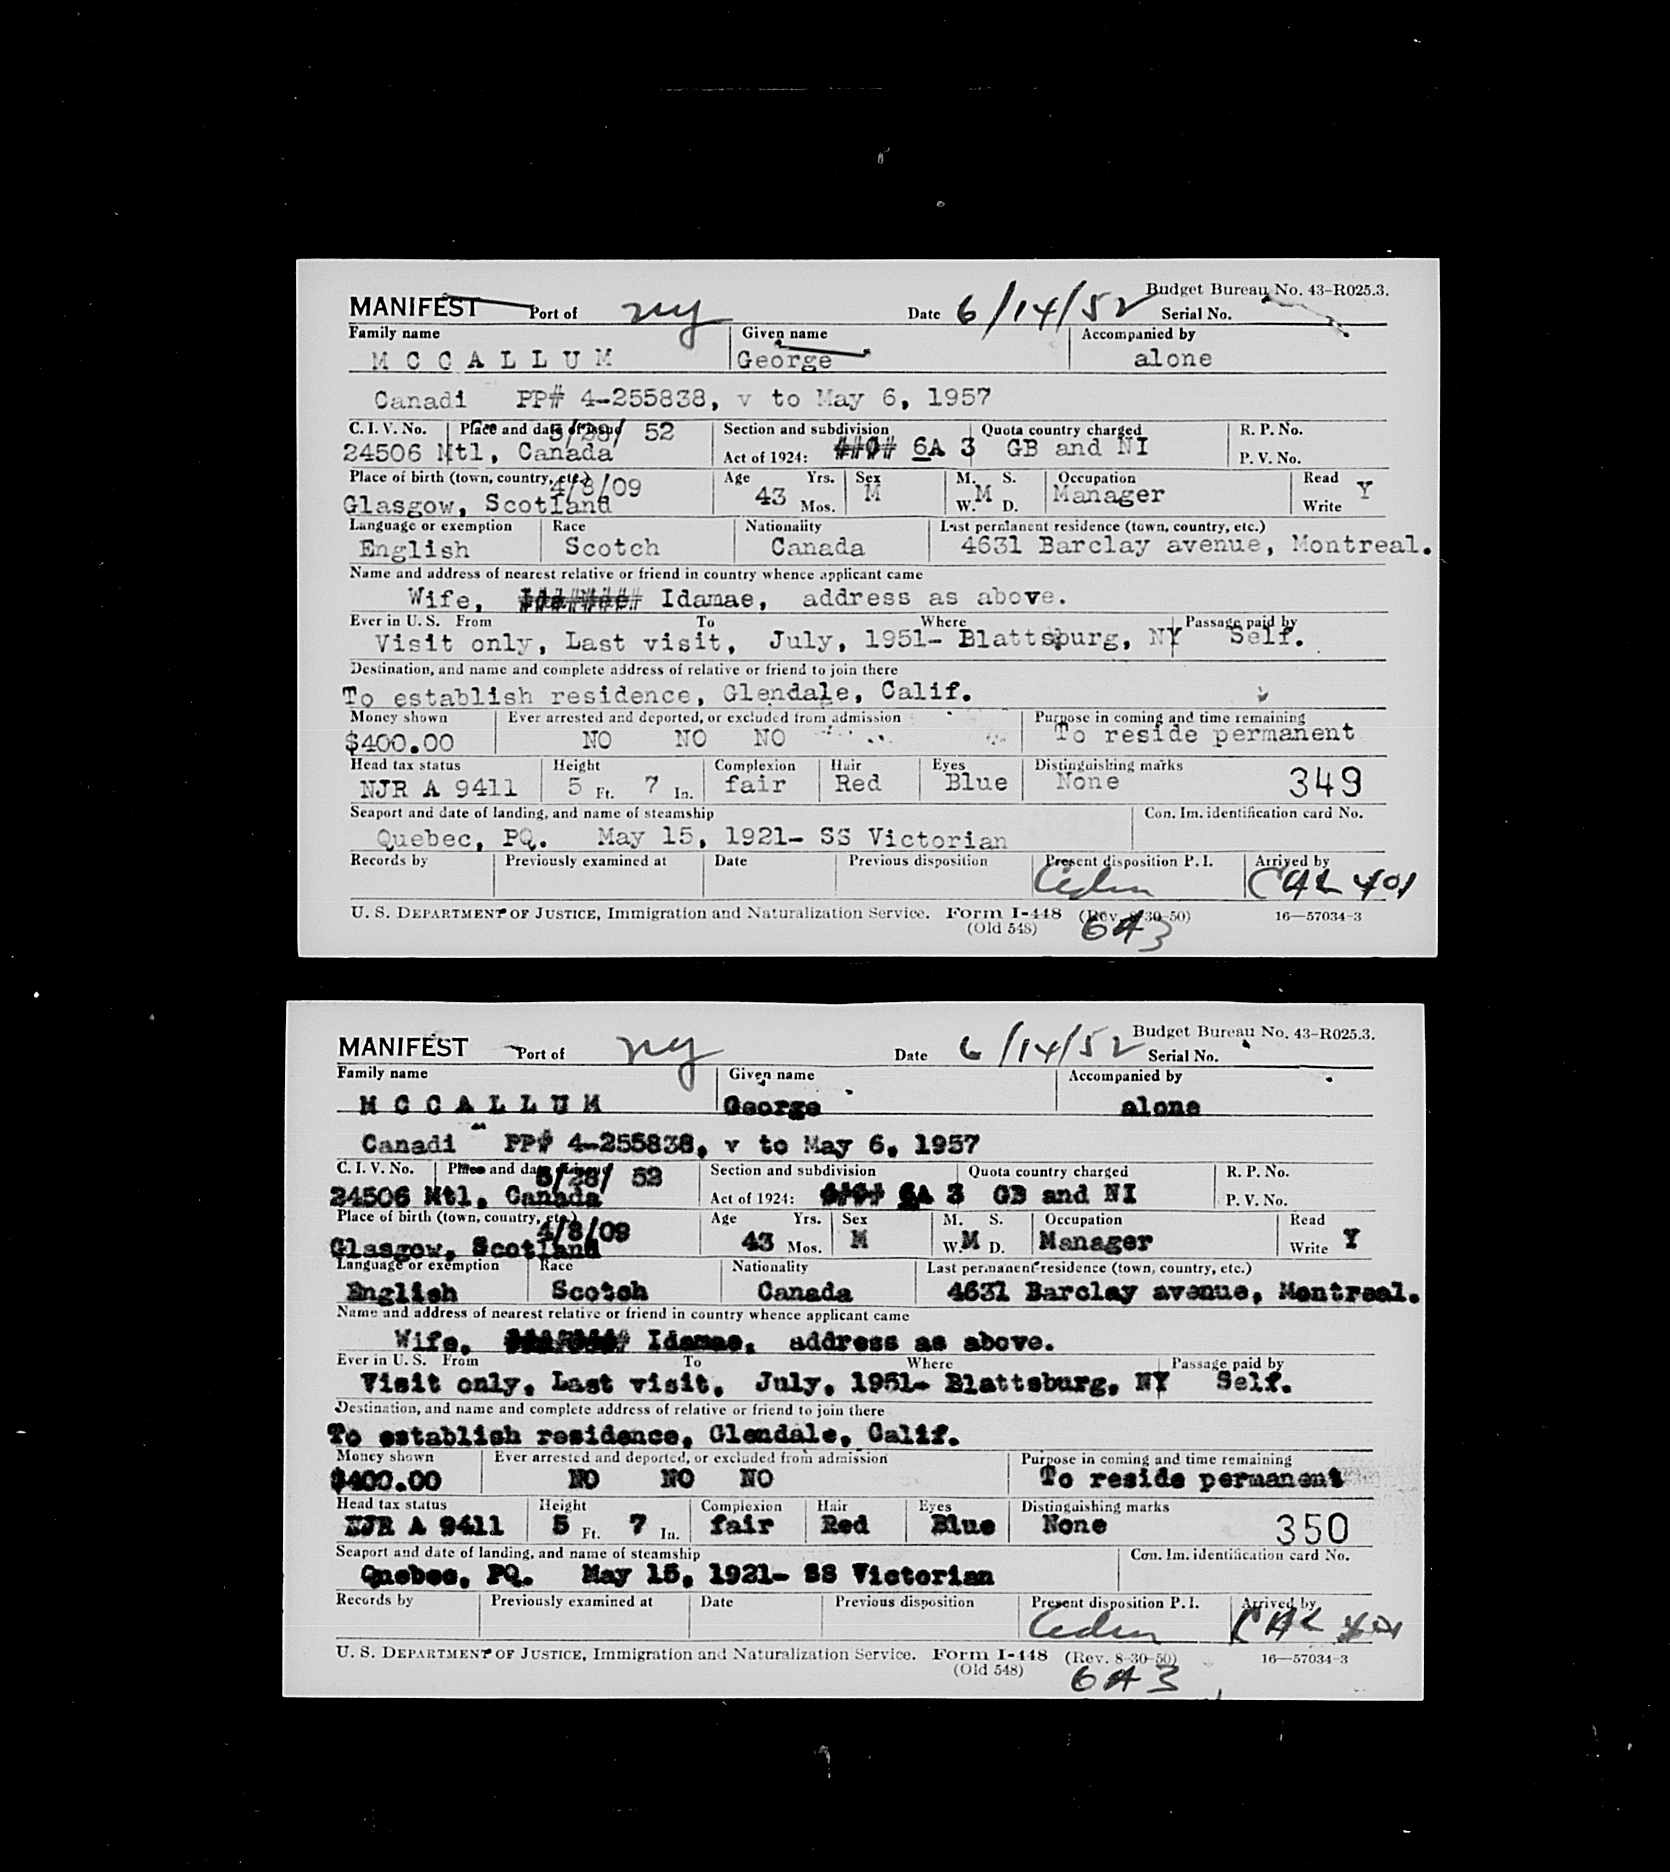 Budget Bureau No. 43-R025.3.
MANIFEST Port of ny Date 6/14/52 Serial No.
Family name Given name Accompanied by
M C C A L L U M George alone
Canadi PP# 4-255838, v to May 6, 1957
C. I. V. No. Place and date of issue 5/28/ 52 Section and subdivision Quota country charged R. P. No.
24506 Mtl, Canada Act of 1924: 6A 3 GB and NI P. V. No.
Place of birth (town, country, etc.) 4/8/09 Age Yrs. Sex M. S. Occupation Read
Glasgow, Scotland 43 Mos. M W. M D. Manager Write Y
Language or exemption Race Nationality Last permanent residence (town, country, etc.)
English Scotch Canada 4631 Barclay avenue, Montreal.
Name and address of nearest relative or friend in country whence applicant came
Wife, Idamae, address as above.
Ever in U. S. From To Where Passage paid by
Visit only, Last visit, July, 1951- Blattsburg, NY Self.
Destination, and name and complete address of relative or friend to join there
To establish residence, Glendale, Calif.
Money shown Ever arrested and deported, or excluded from admission Purpose in coming and time remaining
$400.00 NO NO NO To reside permanent
Head tax status Height Complexion Hair Eyes Distinguishing marks
NJR A 9411 5 Ft. 7 In. fair Red Blue None 349
Seaport and date of landing, and name of steamship Con. Im. identification card No.
Quebec, PQ. May 15, 1921- SS Victorian
Records by Previously examined at Date Previous disposition Present disposition P. I. Arrived by
CAL 401
U. S. DEPARTMENT OF JUSTICE, Immigration and Naturalization Service. Form I-448 (Rev. 8-30-50) 16—57034-3
(Old 548) 6A3
Budget Bureau No. 43-R025.3.
MANIFEST Port of ny Date 6/14/52 Serial No.
Family name Given name Accompanied by
M C C A L L U M George alone
Canadi PP# 4-255838, v to May 6, 1957
C. I. V. No. Place and date of issue 5/28/ 52 Section and subdivision Quota country charged R. P. No.
24506 Mtl, Canada Act of 1924: 6A 3 GB and NI P. V. No.
Place of birth (town, country, etc.) 4/8/09 Age Yrs. Sex M. S. Occupation Read
Glasgow, Scotland 43 Mos. M W. M D. Manager Write Y
Language or exemption Race Nationality Last permanent residence (town, country, etc.)
English Scotch Canada 4631 Barclay avenue, Montreal.
Name and address of nearest relative or friend in country whence applicant came
Wife, Idamae, address as above.
Ever in U. S. From To Where Passage paid by
Visit only, Last visit, July, 1951- Blattsburg, NY Self.
Destination, and name and complete address of relative or friend to join there
To establish residence, Glendale, Calif.
Money shown Ever arrested and deported, or excluded from admission Purpose in coming and time remaining
$400.00 NO NO NO To reside permanent
Head tax status Height Complexion Hair Eyes Distinguishing marks
NJR A 9411 5 Ft. 7 In. fair Red Blue None 350
Seaport and date of landing, and name of steamship Con. Im. identification card No.
Quebec, PQ. May 15, 1921- SS Victorian
Records by Previously examined at Date Previous disposition Present disposition P. I. Arrived by
CAL 401
U. S. DEPARTMENT OF JUSTICE, Immigration and Naturalization Service. Form I-448 (Rev. 8-30-50) 16—57034-3
(Old 548) 6A3